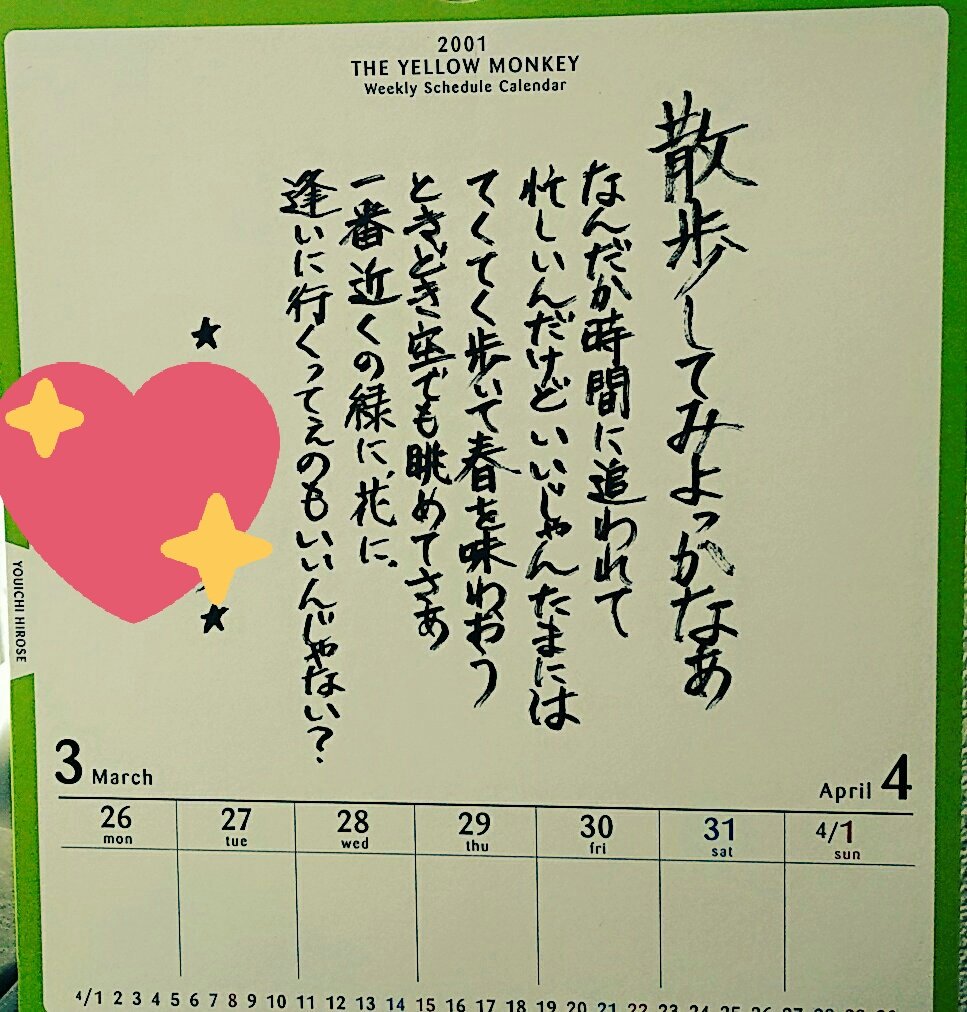 2001
THE YELLOW MONKEY
Weekly Schedule Calendar
散歩してみよっかなぁ
なんだか時間に追われて
忙しいんだけどいいじゃんたまには
てくてく歩いて春を味わおう
ときどき空でも眺めてさぁ
一番近くの緑に、花に、
逢いに行くってえのもいいんじゃない?
★
★
YOUICHI HIROSE
3 March
April 4
26 27 28 29 30 31 4/1
mon tue wed thu fri sat sun
4/1 2 3 4 5 6 7 8 9 10 11 12 13 14 15 16 17 18 19 20 21 22 23 24 25 26 27 28 29 30